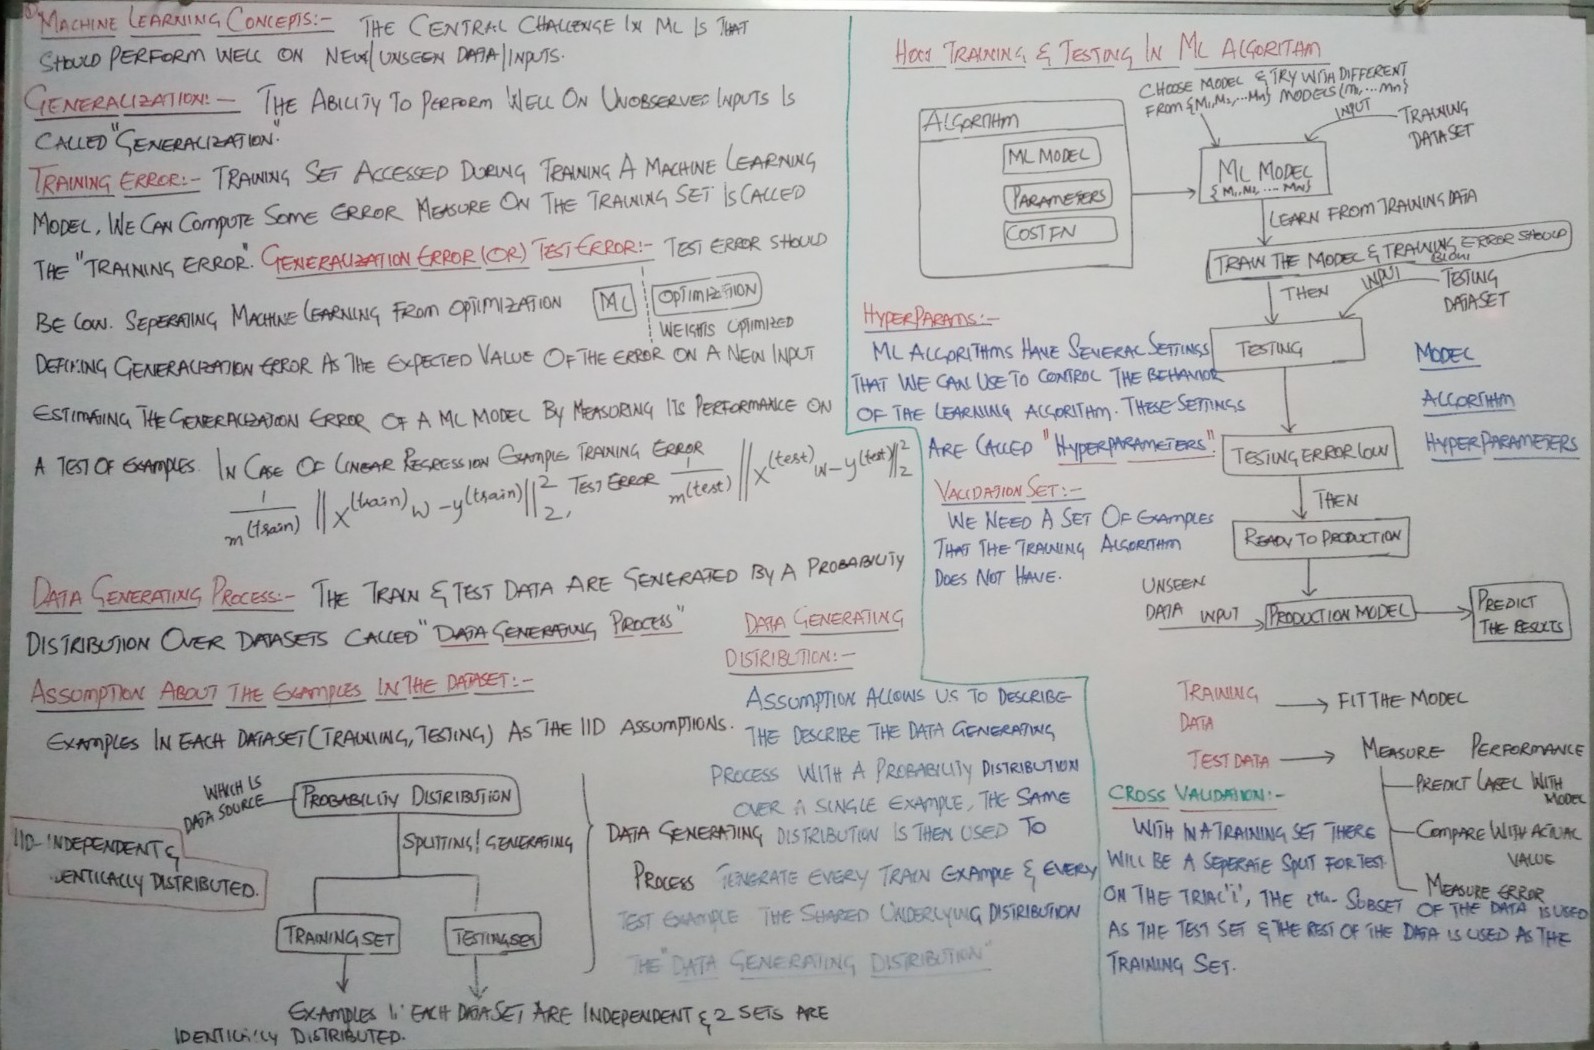 MACHINE LEARNING CONCEPTS:- THE CENTRAL CHALLENGE IN ML IS THAT
SHOULD PERFORM WELL ON NEW/UNSEEN DATA/INPUTS.
GENERALIZATION:- THE ABILITY TO PERFORM WELL ON UNOBSERVED INPUTS IS
CALLED "GENERALIZATION".
TRAINING ERROR:- TRAINING SET ACCESSED DURING TRAINING A MACHINE LEARNING
MODEL, WE CAN COMPUTE SOME ERROR MEASURE ON THE TRAINING SET IS CALLED
THE "TRAINING ERROR". GENERALIZATION ERROR (OR) TEST ERROR:- TEST ERROR SHOULD
BE LOW. SEPERATING MACHINE LEARNING FROM OPTIMIZATION
ML OPTIMIZATION
WEIGHTS OPTIMIZED
DEFINING GENERALIZATION ERROR AS THE EXPECTED VALUE OF THE ERROR ON A NEW INPUT
ESTIMATING THE GENERALIZATION ERROR OF A ML MODEL BY MEASURING ITS PERFORMANCE ON
A TEST OF EXAMPLES. IN CASE OF LINEAR REGRESSION EXAMPLE TRAINING ERROR
1/m^(train) ||X^(train) w - y^(train)||²₂, TEST ERROR 1/m^(test) ||X^(test) w - y^(test)||²₂
DATA GENERATING PROCESS:- THE TRAIN & TEST DATA ARE GENERATED BY A PROBABILITY
DISTRIBUTION OVER DATASETS CALLED "DATA GENERATING PROCESS"
ASSUMPTION ABOUT THE EXAMPLES IN THE DATASET:-
EXAMPLES IN EACH DATASET (TRAINING, TESTING) AS THE IID ASSUMPTIONS.
WHICH IS
DATA SOURCE
PROBABILITY DISTRIBUTION
SPLITTING/GENERATING
IID-INDEPENDENT &
IDENTICALLY DISTRIBUTED.
TRAINING SET
TESTING SET
DATA GENERATING
PROCESS
EXAMPLES IN EACH DATASET ARE INDEPENDENT & 2 SETS ARE
IDENTICALLY DISTRIBUTED.
DATA GENERATING
DISTRIBUTION:-
ASSUMPTION ALLOWS US TO DESCRIBE
THE DESCRIBE THE DATA GENERATING
PROCESS WITH A PROBABILITY DISTRIBUTION
OVER A SINGLE EXAMPLE, THE SAME
DISTRIBUTION IS THEN USED TO
GENERATE EVERY TRAIN EXAMPLE & EVERY
TEST EXAMPLE THE SHARED UNDERLYING DISTRIBUTION
THE "DATA GENERATING DISTRIBUTION"
HOW TRAINING & TESTING IN ML ALGORITHM
ALGORITHM
ML MODEL
PARAMETERS
COST FN
CHOOSE MODEL & TRY WITH DIFFERENT
FROM {M1,M2,...Mn} MODELS (M1,...Mn}
INPUT
TRAINING
DATASET
ML MODEL
{M1,M2, .... Mn}
LEARN FROM TRAINING DATA
TRAIN THE MODEL & TRAINING ERROR SHOULD
THEN
INPUT
TESTING
DATASET
TESTING
TESTING ERROR LOW
THEN
READY TO PRODUCTION
UNSEEN
DATA INPUT
PRODUCTION MODEL
PREDICT
THE RESULTS
MODEL
ALGORITHM
HYPERPARAMETERS
HYPERPARAMS:-
ML ALGORITHMS HAVE SEVERAL SETTINGS
THAT WE CAN USE TO CONTROL THE BEHAVIOR
OF THE LEARNING ALGORITHM. THESE SETTINGS
ARE CALLED "HYPERPARAMETERS".
VALIDATION SET:-
WE NEED A SET OF EXAMPLES
THAT THE TRAINING ALGORITHM
DOES NOT HAVE.
TRAINING
DATA
FIT THE MODEL
TEST DATA
MEASURE PERFORMANCE
PREDICT LABEL WITH
MODEL
COMPARE WITH ACTUAL
VALUE
MEASURE ERROR
CROSS VALIDATION:-
WITH IN A TRAINING SET THERE
WILL BE A SEPERATE SPLIT FOR TEST.
ON THE TRIAL 'i', THE ith SUBSET OF THE DATA IS USED
AS THE TEST SET & THE REST OF THE DATA IS USED AS THE
TRAINING SET.